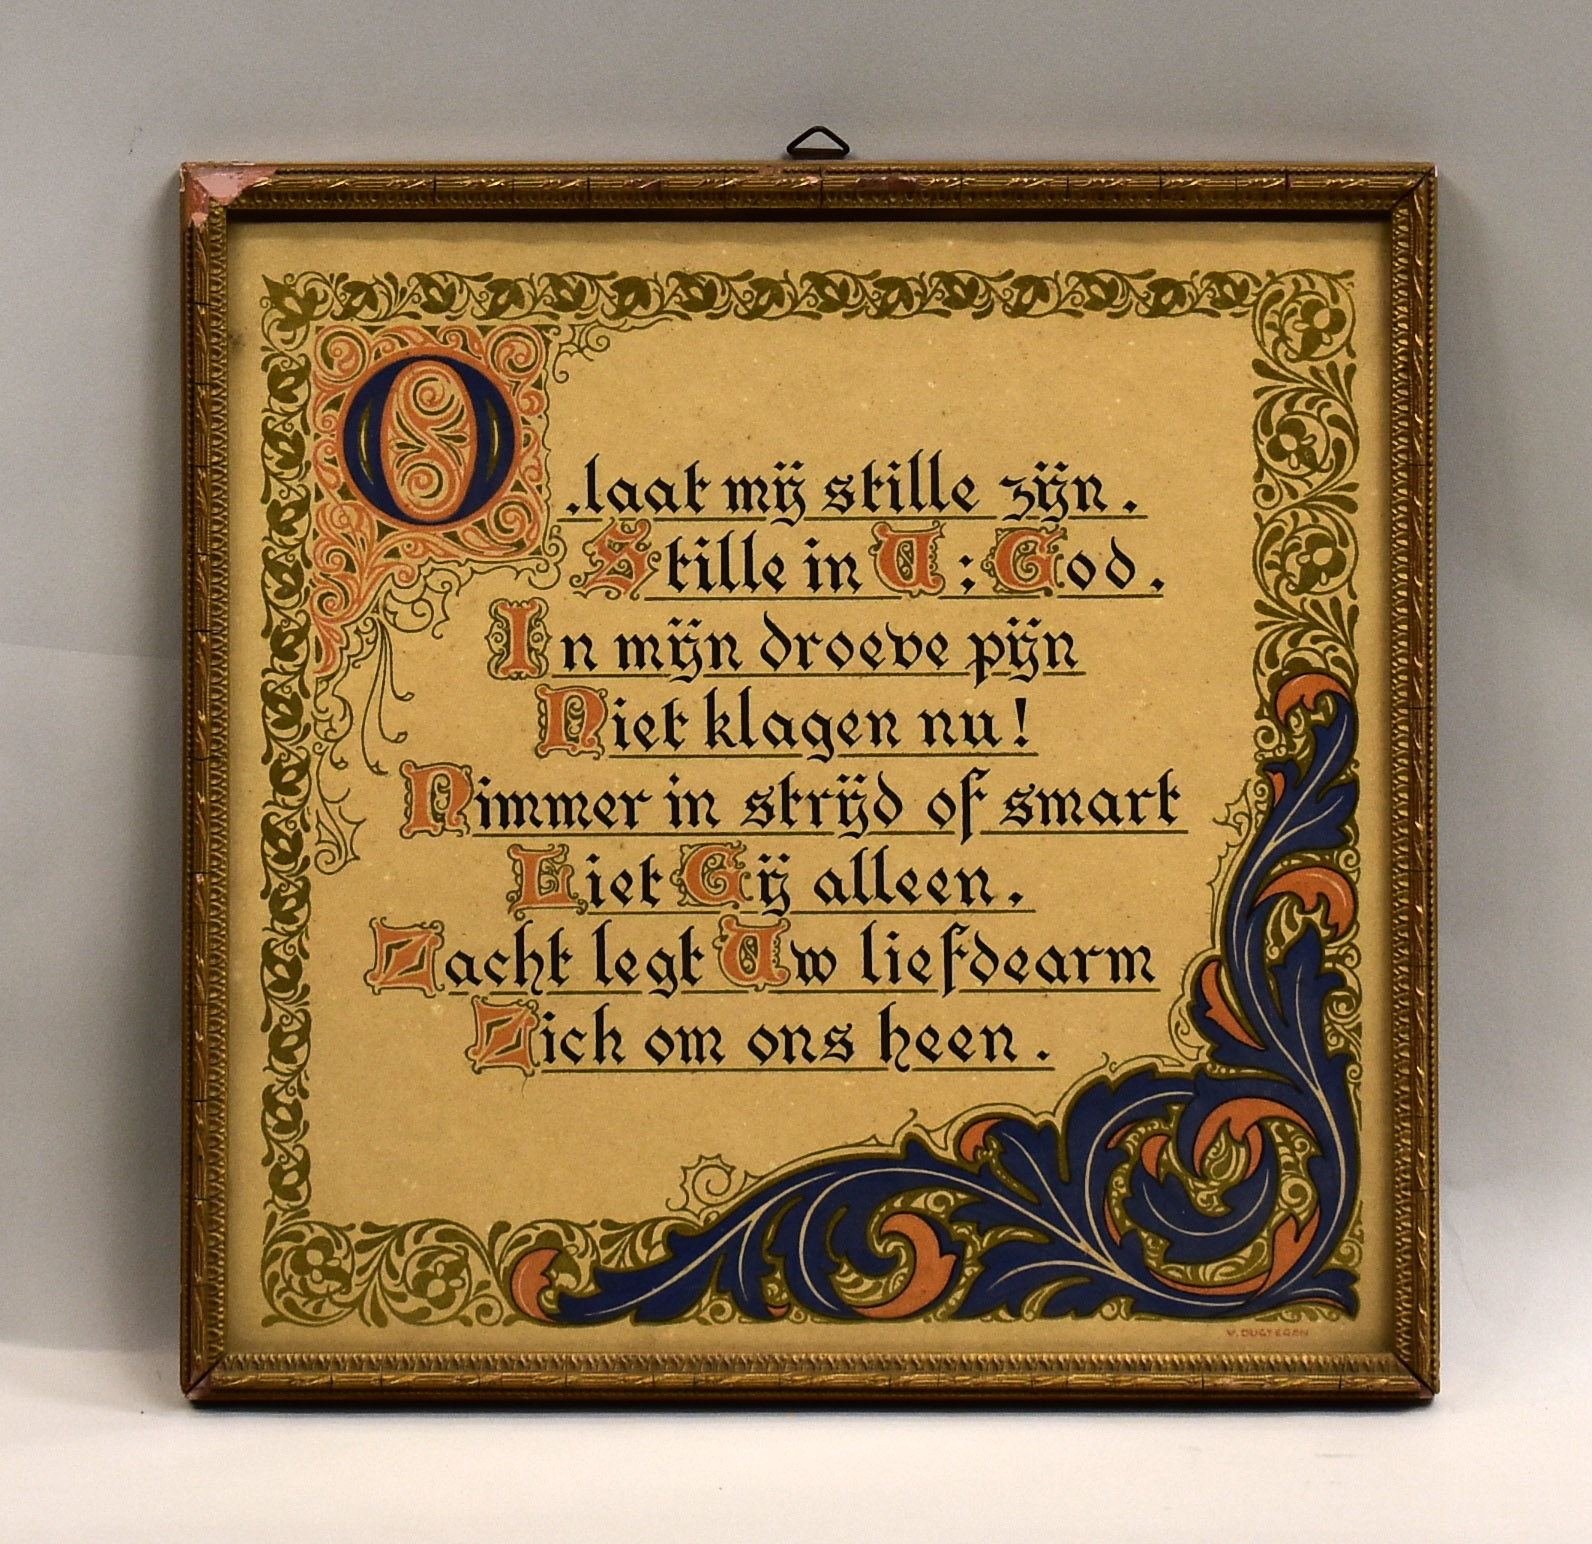 O .laat mÿ stille zÿn.
Stille in U : God.
In mÿn droeve pÿn
Niet klagen nu!
Nimmer in strÿd of smart
Liet Gÿ alleen.
Zacht legt Uw liefdearm
Zich om ons heen.
V. DUGTEREN